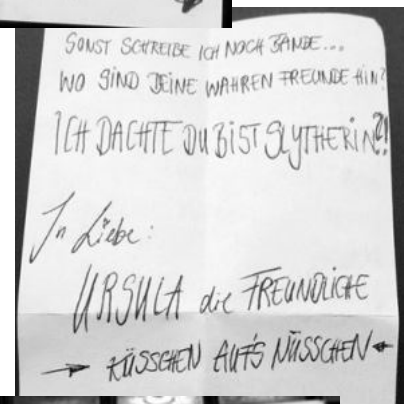 SONST SCHREIBE ICH NOCH BÄNDE...
WO SIND DEINE WAHREN FREUNDE HIN?
ICH DACHTE DU BIST SLYTHERIN?!
In Liebe:
URSULA die FREUNDLICHE
→ KÜSSCHEN AUF'S NÜSSCHEN ←